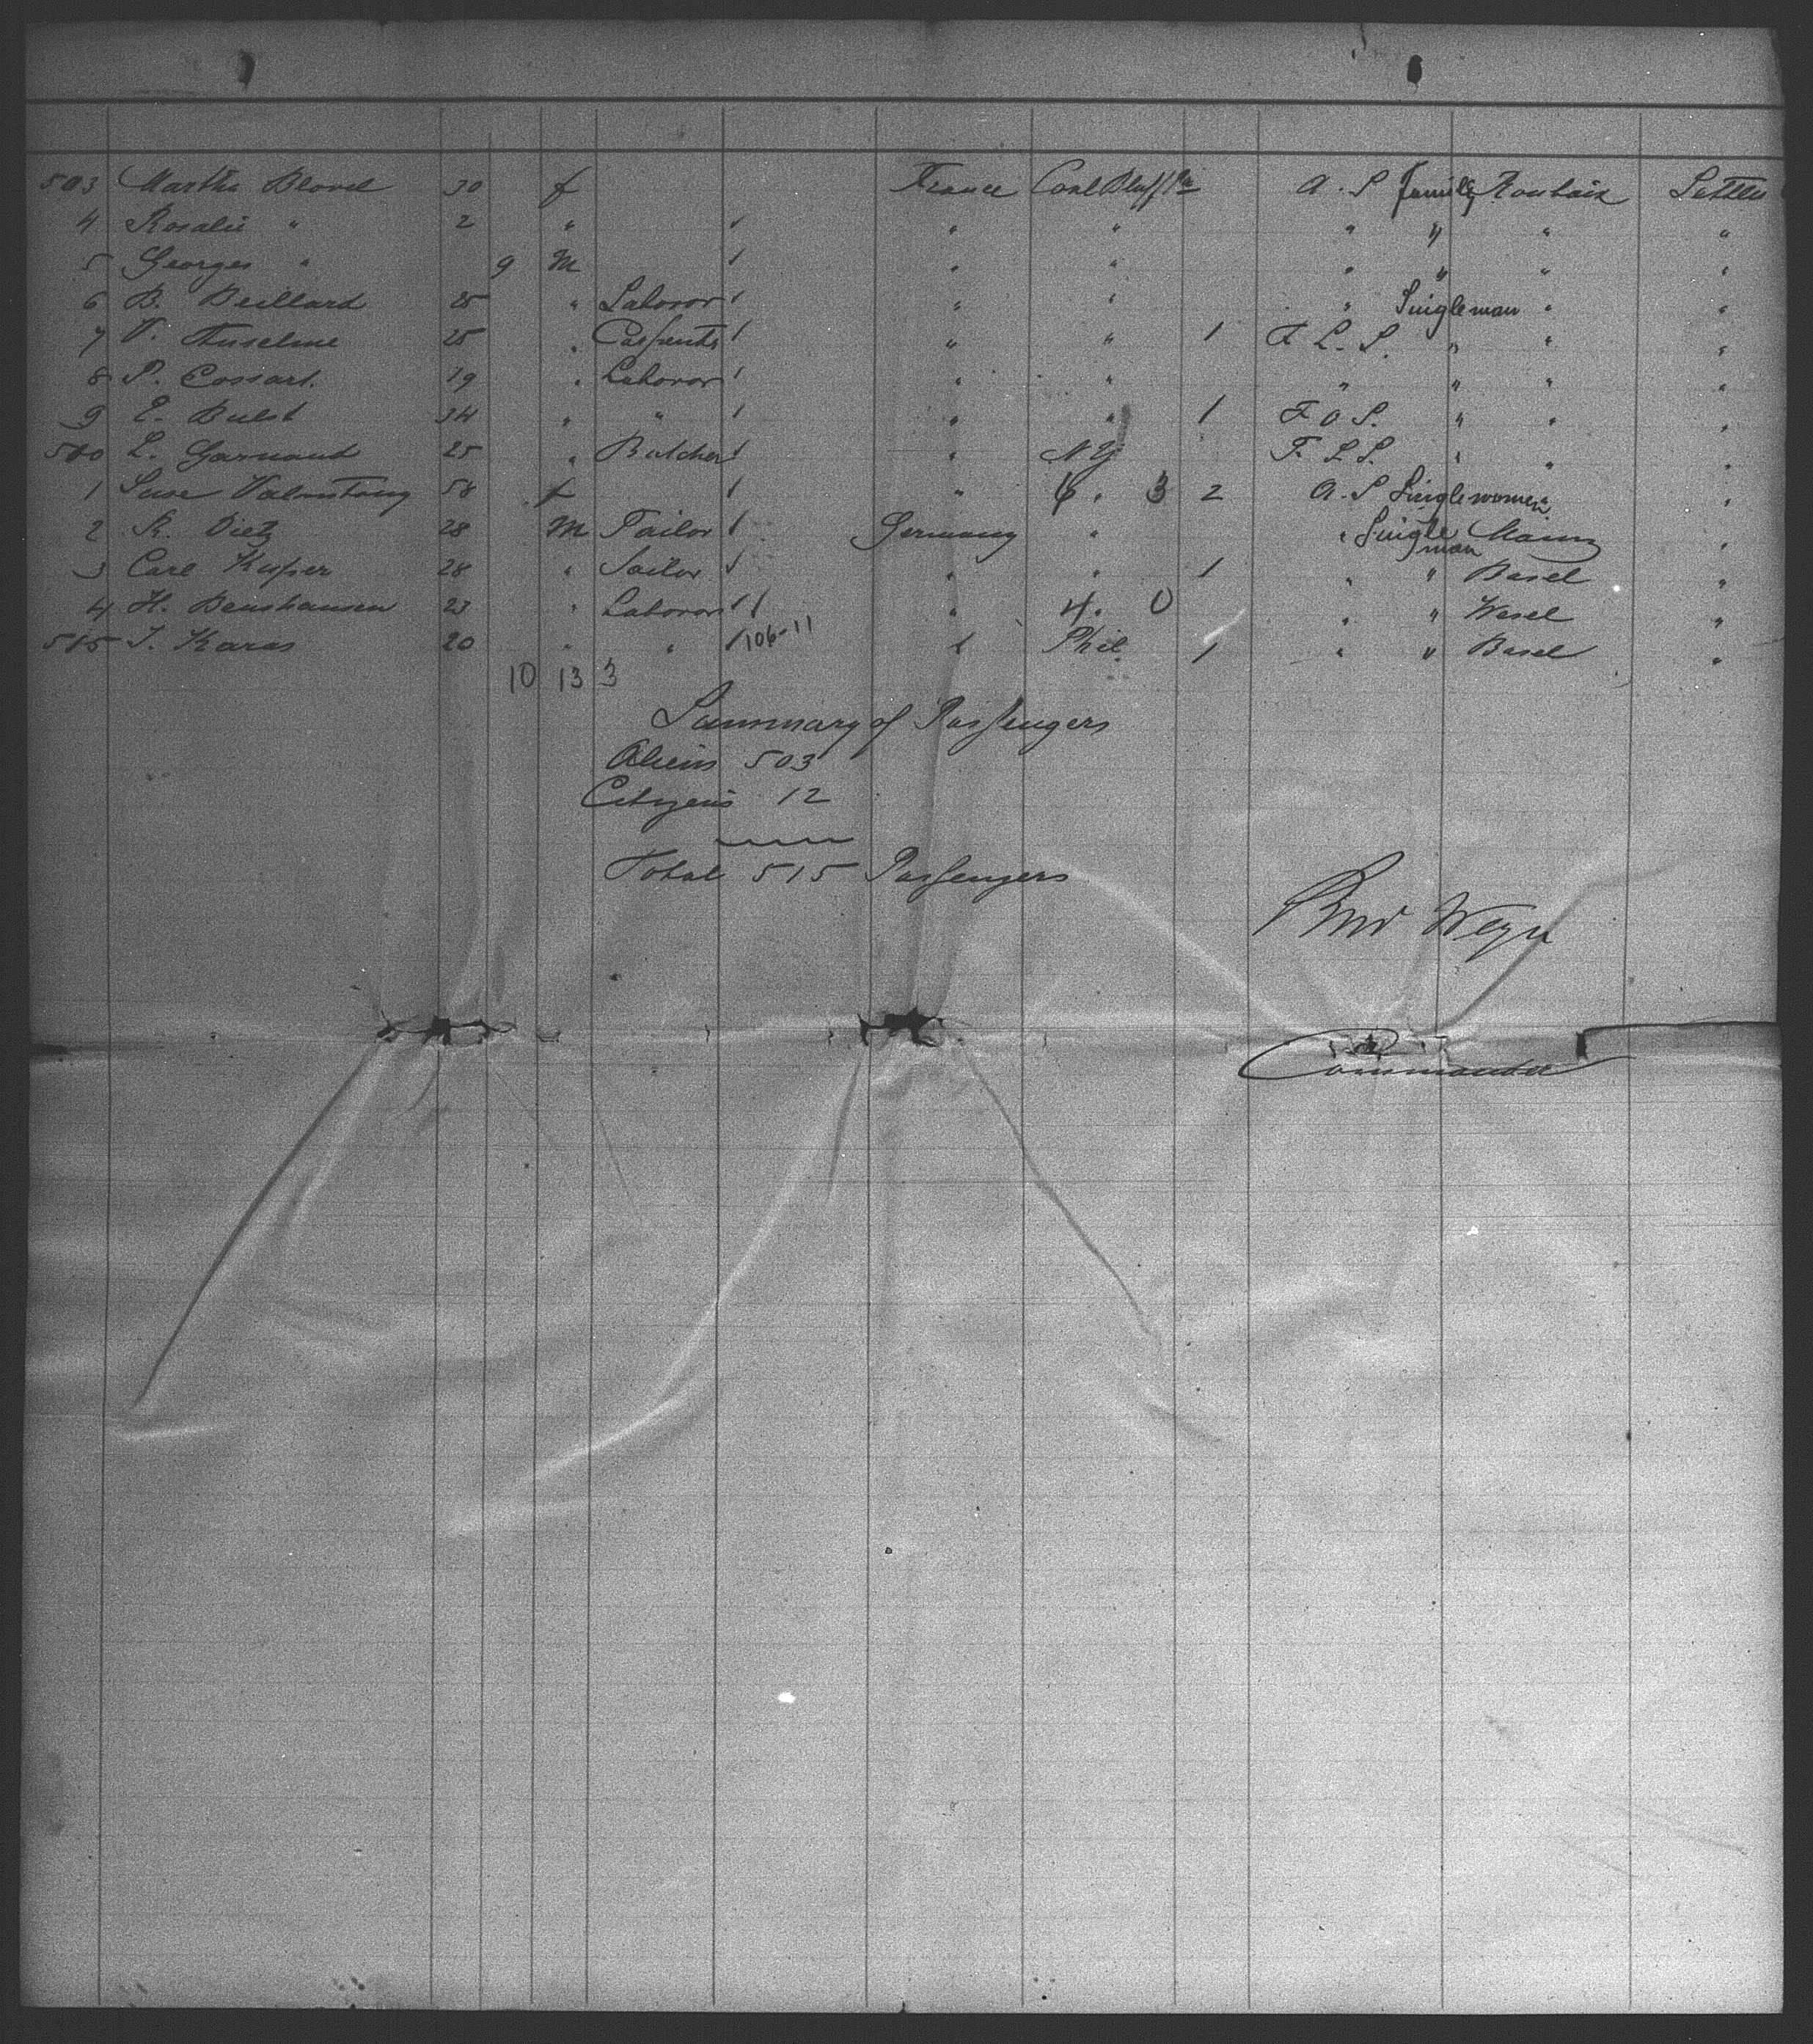 503 Martha Blovel 30 f France Coal Bluff Pa A. S Family Roubaix Settler
4 Rosalie " 2 " " " " " " "
5 Georges " 9 M " " " " " "
6 B. Beillard 25 " Laboror " " " Singleman " "
7 V. Anselme 25 " " " 1 F L. S. " " "
8 P. Cossart. 19 " Laboror " " " " " "
9 E. Bulst 34 " " " " 1 F O S. " " "
500 L. Garnaud 25 " Butcher " N Y F. L S. " " "
1 58 f " 6. 3 2 A. S Singlewomen "
2 R. Dietz 28 M Tailor Germany " " Single man Mainz "
3 Carl Kuper 28 " Sailor " " 1 " " Basel "
4 H. Benshausen 23 " Laboror " 4. 0 " " Wesel "
515 J. Karas 20 " " 106-11 " Phil. 1 " " Basel "
10 13 3
Summary of Passengers
Aliens 503
Citizens 12
Total 515 Passengers
Commander